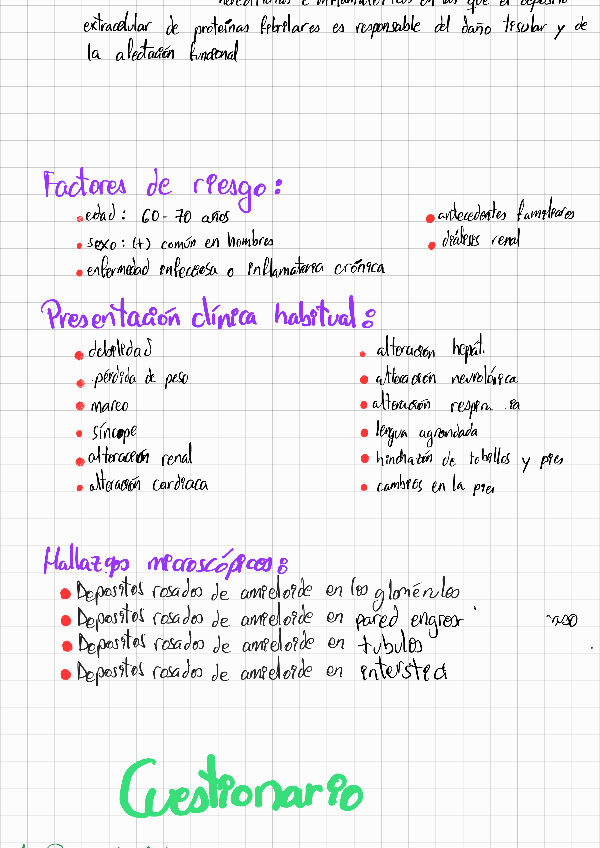 extracelular de proteínas fibrilares es responsable del daño tisular y de
la afectación funcional
Factores de riesgo:
• edad: 60-70 años
• sexo: (+) común en hombres
• enfermedad infecciosa o inflamatoria crónica
• antecedentes familiares
• diálisis renal
Presentación clínica habitual:
• debilidad
• pérdida de peso
• mareo
• síncope
• alteración renal
• alteración cardiaca
• alteración hepát.
• alteración neurológica
• alteración
• lengua agrandada
• hinchazón de tobillos y pies
• cambios en la piel
Hallazgos microscópicos:
• Depositos rosados de amieloide en los glomérulos
• Depositos rosados de amieloide en pared
• Depositos rosados de amieloide en tubulos
• Depositos rosados de amieloide en
Cuestionario